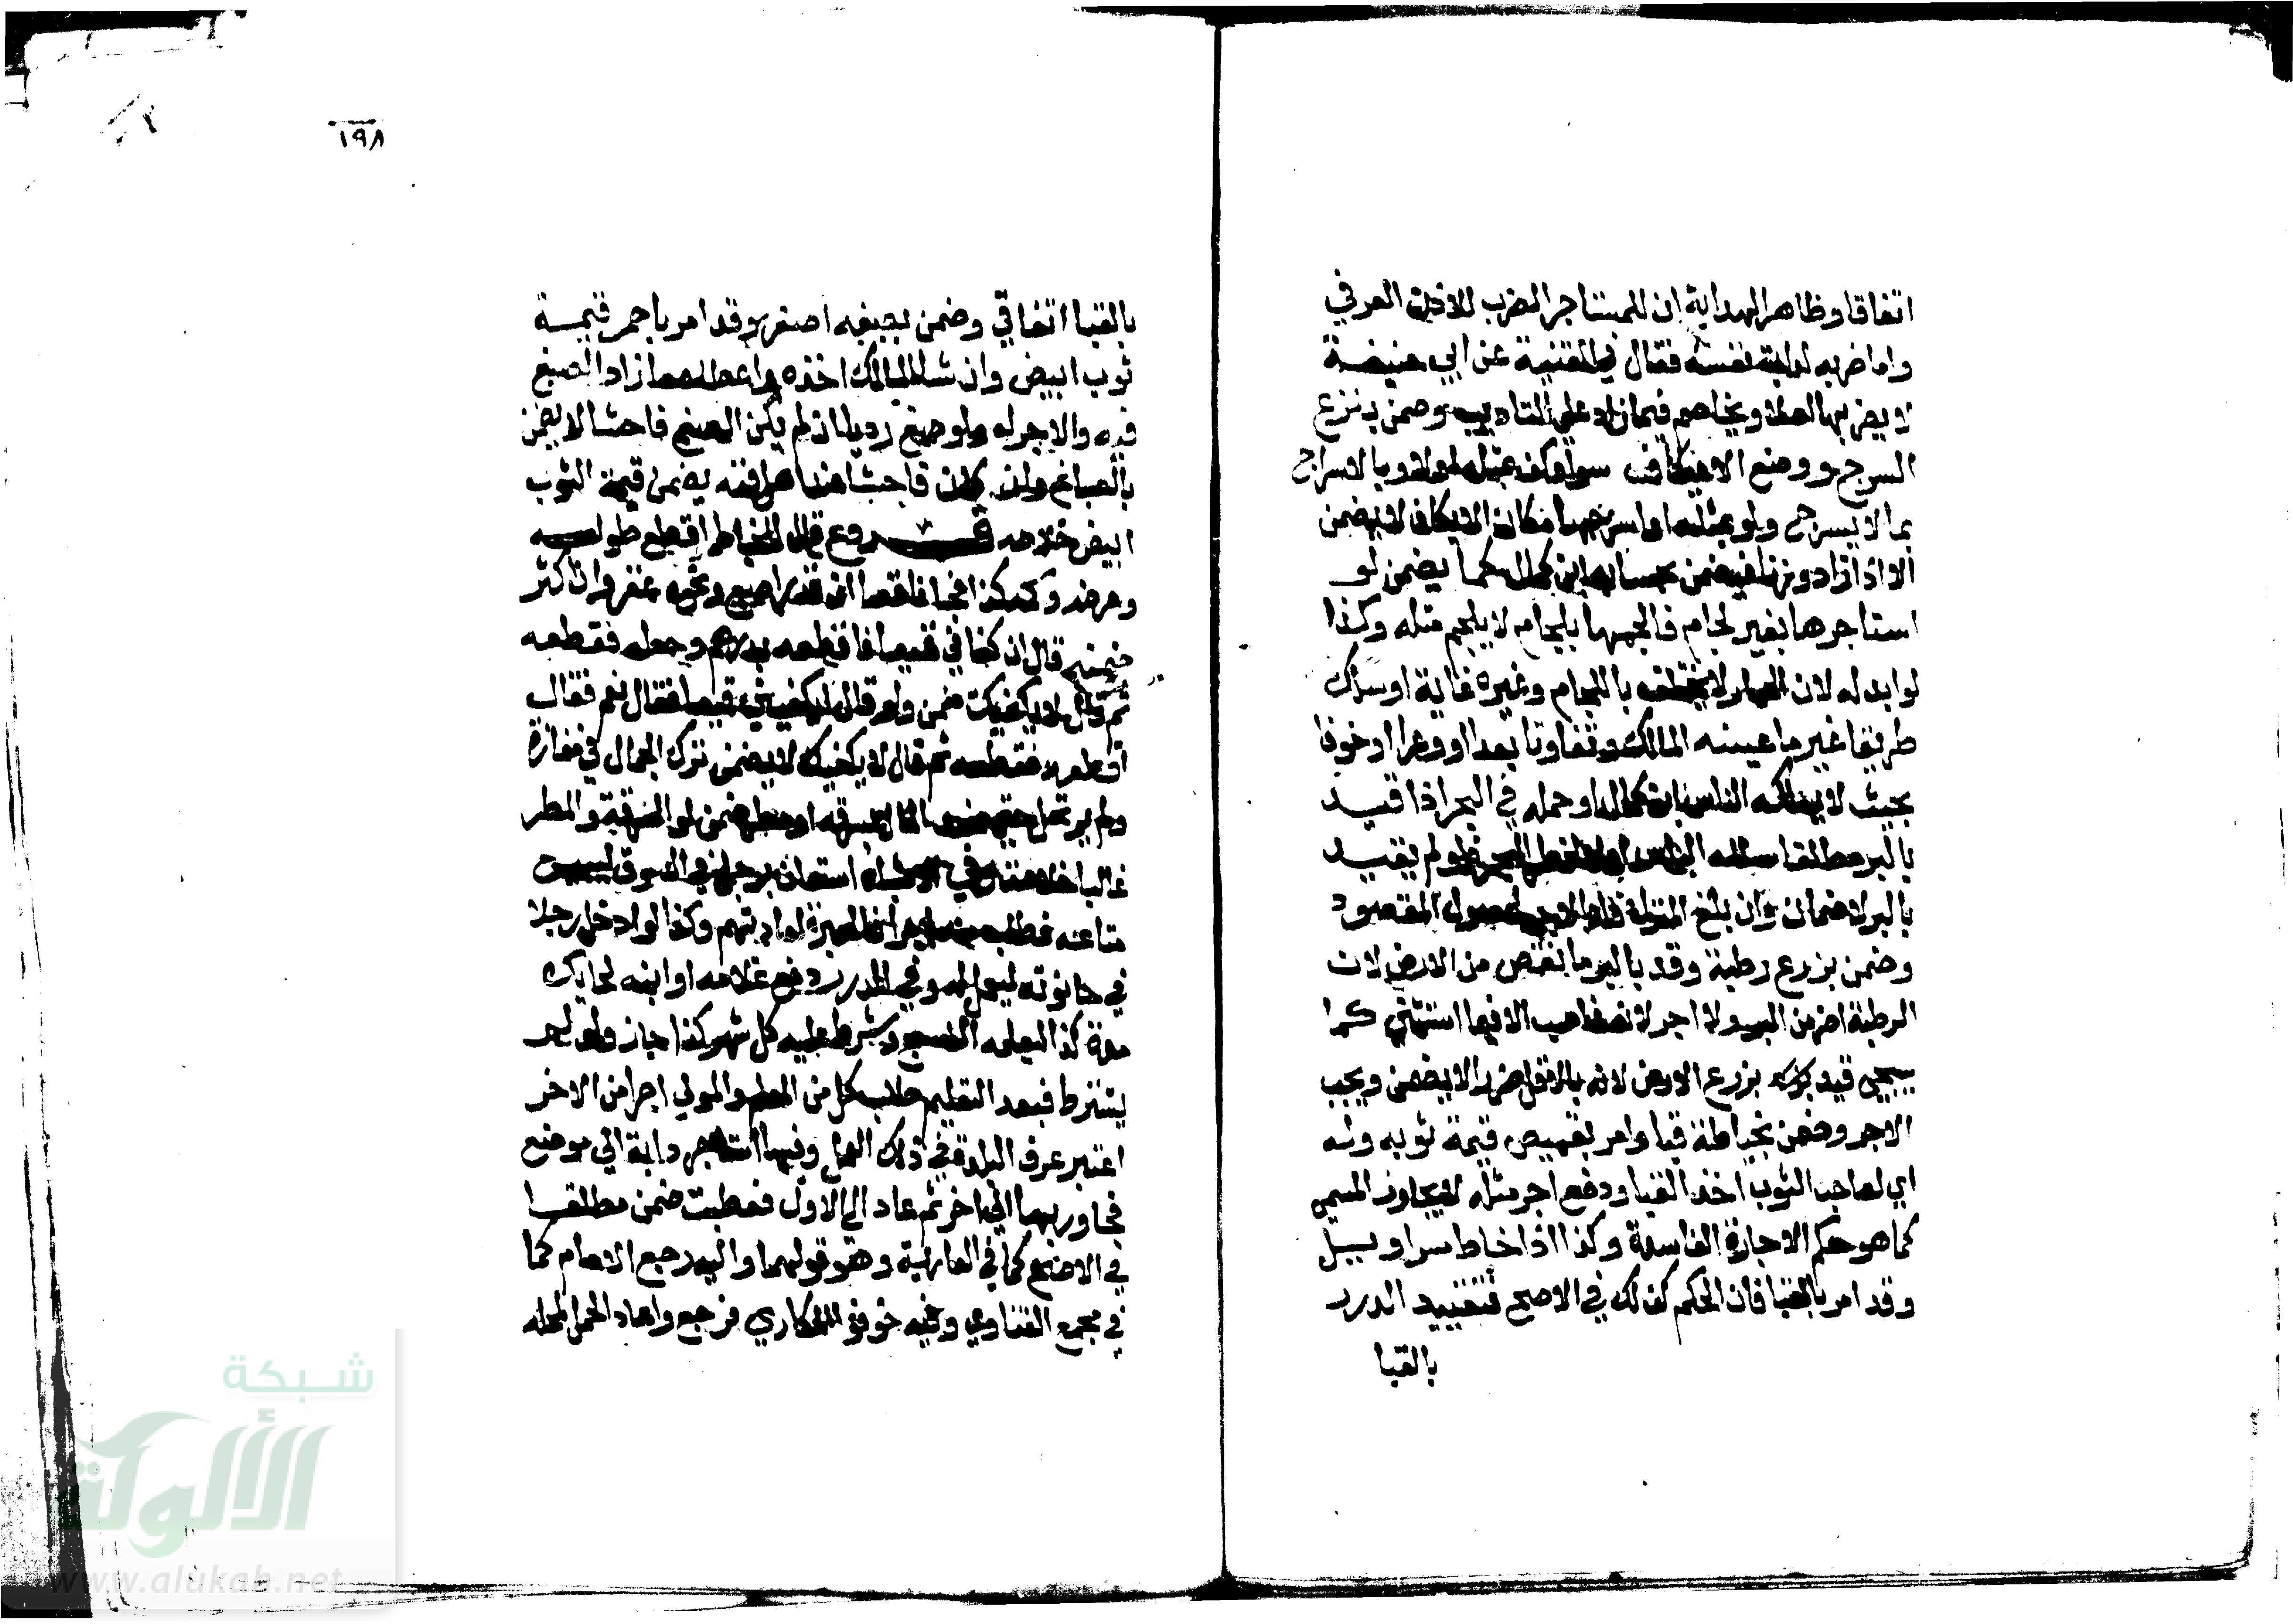 اتفاقا وظاهر الهداية ان للمستاجر الضرب للاذن العرفي
واما ضربه لدابة نفسه فقال في القنية عن ابي حنيفة
لا يضربها اصلا ويخاصم فيما زاد علي التاديب وضمن بنزع
السرج ووضع الاكاف سواء وكف بمثله اولا وبالاسراج
بما لا يسرج ولو بمثله او اسرجها مكان الاكاف لا يضمن
الا اذا زاد وزنا فيضمن بحسابه ابن كمال كما يضمن لو
استاجرها بغير لجام فالجمها بلجام لا يلجم مثله وكذا
لو ابدله لان الحمار لا يختلف باللجام وغيره غاية او سلك
طريقا غير ما عينه المالك وتفاوتا بعدا او وعرا او خوفا
بحيث لا يسلكه الناس ابن كمال او حمله في البحر اذا قيد
بالبر مطلقا سلكه الناس اولا لخطر البحر فلو لم يقيد
بالبر لا ضمان وان بلغ المنزل فله الاجر لحصول المقصود
وضمن بزرع رطبة وقد بالبر ما نقص من الارض لان
الرطبة اضر من البر ولا اجر لانه غاصب الا فيما استثني كما
سيجي قيد بزرع الارض لانه بالاقل ضررا لا يضمن ويجب
الاجر وضمن بخياطة قبا وامر بقميص قيمة ثوبه وله
اي لصاحب الثوب اخذ القبا ودفع اجر مثله لا يجاوز المسمي
كما هو حكم الاجارة الفاسدة وكذا اذا خاط سراويل
وقد امر بالقبا فان الحكم كذلك في الاصح فتقييد الدرر
بالقبا
١٩٨
بالقبا اتفاقي وضمن بصبغه اصفر وقد امر باحمر قيمة
ثوب ابيض وان شاء المالك اخذه واعطاه ما زاد الصبغ
فيه ولا اجر له ولو صبغ رديا ان لم يكن الصبغ فاحشا لا يضمن
الصباغ وان كان فاحشا عند اهل فنه يضمن قيمة الثوب
ابيض خلاصه فروع قال للخياط اقطع طوله
وعرضه وكمه كذا فجا ناقصا ان قدر اصبع ونحوه عفو وان اكثر
ضمنه قال ان كفاني قميصا فاقطعه بدرهم وخطه فقطعه
ثم قال لا يكفيك ضمن ولو قال ايكفيني قميصا فقال نعم فقال
اقطعه فقطعه ثم قال لا يكفيك لا يضمن نزل الجمال في مفازة
ولم يرتحل حتي فسد المال بسرقه او مطر ضمن لو السرقة والمطر
غالبا خلاصة وفي الاشباه استعان برجل في السوق ليبيع
متاعه فطلب منه اجرا فالعبرة لعادتهم وكذا لو ادخل رجلا
في حانوته ليعمل له وفي الدرر دفع غلامه او ابنه لحايك
مدة كذا ليعلمه النسج وشرط عليه كل شهر كذا جاز ولو لم
يشترط فبعد التعليم طلب كل من المعلم والمولي اجرا من الاخر
اعتبر عرف البلدة في ذلك العمل وفيها استاجر دابة الي موضع
فجاوز بها الي اخر ثم عاد الي الاول فعطبت ضمن مطلقا
في الاصح كما في العارية وهو قولهما واليه رجع الامام كما
في مجمع الفتاوي وفيه خوفوا المكاري فرجع واعاد الحمل لمحله
شبكة
الألوكة
www.alukah.net